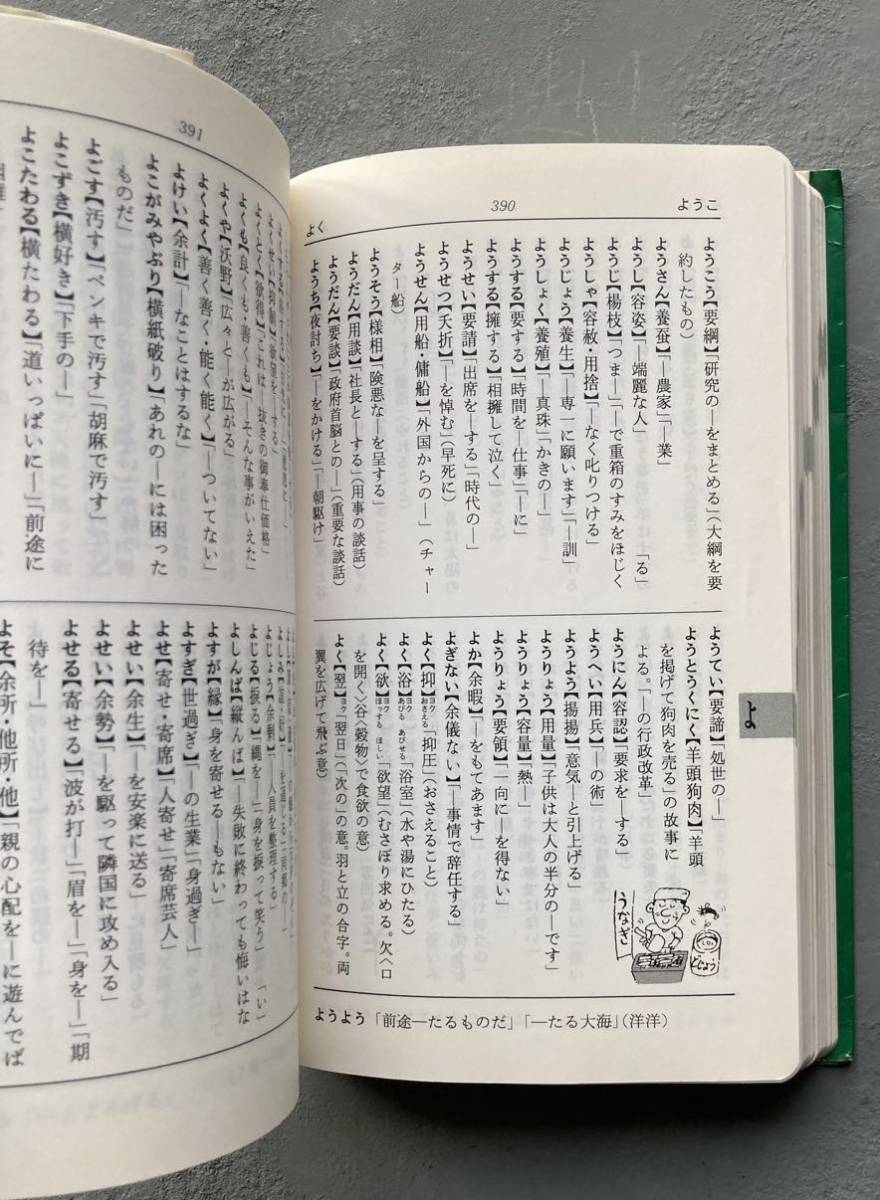 ようこ
390
よく
ようこう【要綱】「研究の―をまとめる」（大綱を要
約したもの）
ようさん【養蚕】「―農家」「―業」
ようし【容姿】「―端麗な人」
ようじ【楊枝】「つま―」「―で重箱のすみをほじく
「る」
ようしゃ【容赦・用捨】「―なく叱りつける」
ようじょう【養生】「―専一に願います」「―訓」
ようしょく【養殖】「―真珠」「かきの―」
ようする【要する】「時間を―仕事」「―に」
ようする【擁する】「相擁して泣く」
ようせい【要請】「出席を―する」「時代の―」
ようせつ【夭折】「―を悼む」（早死に）
ようせん【用船・傭船】「外国からの―」（チャー
ター船）
ようそう【様相】「険悪な―を呈する」
ようだん【用談】「社長と―する」（用事の談話）
ようだん【要談】「政府首脳との―」（重要な談話）
ようち【夜討ち】「―をかける」「―朝駆け」
ようてい【要諦】「処世の―」
ようとうくにく【羊頭狗肉】「羊頭
を掲げて狗肉を売る」の故事に
よる。「―の行政改革」
ようにん【容認】「要求を―する」
ようへい【用兵】「―の術」
ようよう【揚揚】「意気―と引上げる」
ようりょう【用量】「子供は大人の半分の―です」
ようりょう【容量】「熱―」
ようりょう【要領】「一向に―を得ない」
よか【余暇】「―をもてあます」
よぎない【余儀ない】「―事情で辞任する」
よく【抑】ヨク おさえる「抑圧」（おさえること）
よく【浴】ヨク あびる あびせる「浴室」（水や湯にひたる）
よく【欲】ヨク ほっする ほしい「欲望」（むさぼり求める。欠〈口
を開く〉谷〈穀物〉で食欲の意）
よく【翌】ヨク「翌日」（「次の」の意。羽と立の合字。両
翼を広げて飛ぶ意）
うなぎ
どじょう
よ
ようよう「前途―たるものだ」「―たる大海」（洋洋）
391
よくせい【抑制】「欲望を―する」
よくとく【欲得】「これは―抜きの御奉仕価格」
よくも【良くも・善くも】「―そんな事がいえた」
よくや【沃野】「広々と―が広がる」
よくよく【善く善く・能く能く】「―ついてない」
よけい【余計】「―なことはするな」
よこがみやぶり【横紙破り】「あれの―には困った
ものだ」
よごす【汚す】「ペンキで汚す」「胡麻で汚す」
よこずき【横好き】「下手の―」
よこたわる【横たわる】「道いっぱいに―」「前途に
よじょう【余剰】「―人員を整理する」
よじる【捩る】「縄を―」「身を捩って笑う」
よしんば【縦んば】「―失敗に終わっても悔いはな
「い」
よすが【縁】「身を寄せる―もない」
よすぎ【世過ぎ】「―の生業」「身過ぎ―」
よせ【寄せ・寄席】「人寄せ」「寄席芸人」
よせい【余生】「―を安楽に送る」
よせい【余勢】「―を駆って隣国に攻め入る」
よせる【寄せる】「波が打―」「眉を―」「身を―」「期
待を―」
よそ【余所・他所・他】「親の心配を―に遊んでば